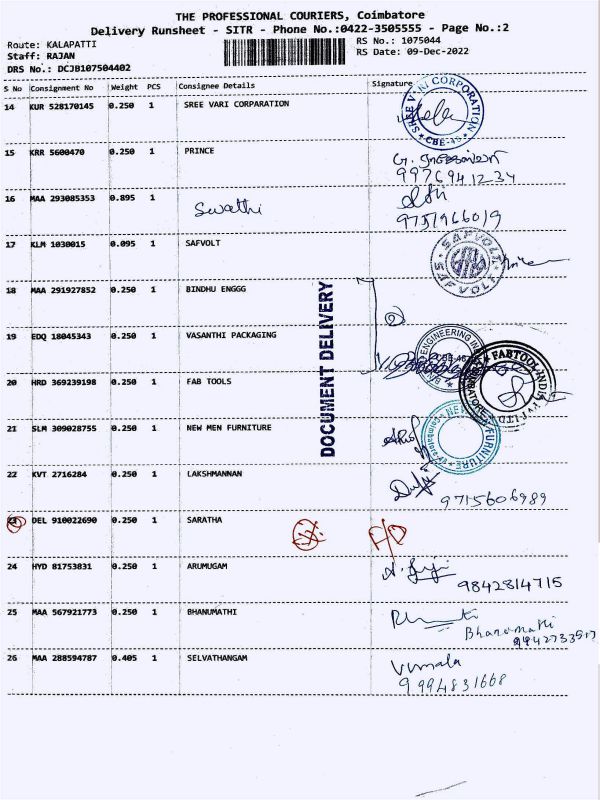 THE PROFESSIONAL COURIERS, Coimbatore
Delivery Runsheet - SITR - Phone No.:0422-3505555 - Page No.:2
Route: KALAPATTI
Staff: RAJAN
DRS No.: DCJB107504402
RS No.: 1075044
RS Date: 09-Dec-2022
S No Consignment No Weight PCS Consignee Details Signature
14 KUR 528170145 0.250 1 SREE VARI CORPARATION
SHREE VARI CORPORATION
CBE-45
15 KRR 5600470 0.250 1 PRINCE
9976941234
16 MAA 293085353 0.895 1 Swathi
9751966019
17 KLM 1030015 0.095 1 SAFVOLT
SAFVOLT
SAFVOLT
18 MAA 291927852 0.250 1 BINDHU ENGGG
DOCUMENT DELIVERY
19 EDQ 18045343 0.250 1 VASANTHI PACKAGING
ENGINEERING
20 HRD 369239198 0.250 1 FAB TOOLS
FABTOOL INDIA PVT LTD
21 SLM 309028755 0.250 1 NEW MEN FURNITURE
FURNITURE
22 KVT 2716284 0.250 1 LAKSHMANNAN
9715606989
23 DEL 910022690 0.250 1 SARATHA
24 HYD 81753831 0.250 1 ARUMUGAM
9842814715
25 MAA 567921773 0.250 1 BHANUMATHI
Bhanumathi
26 MAA 288594787 0.405 1 SELVATHANGAM
Vimala
9994831668